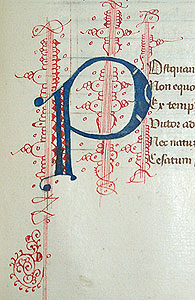 Postquam
Non equo
Et temp
Victor ad
Nec natu
Cesarum